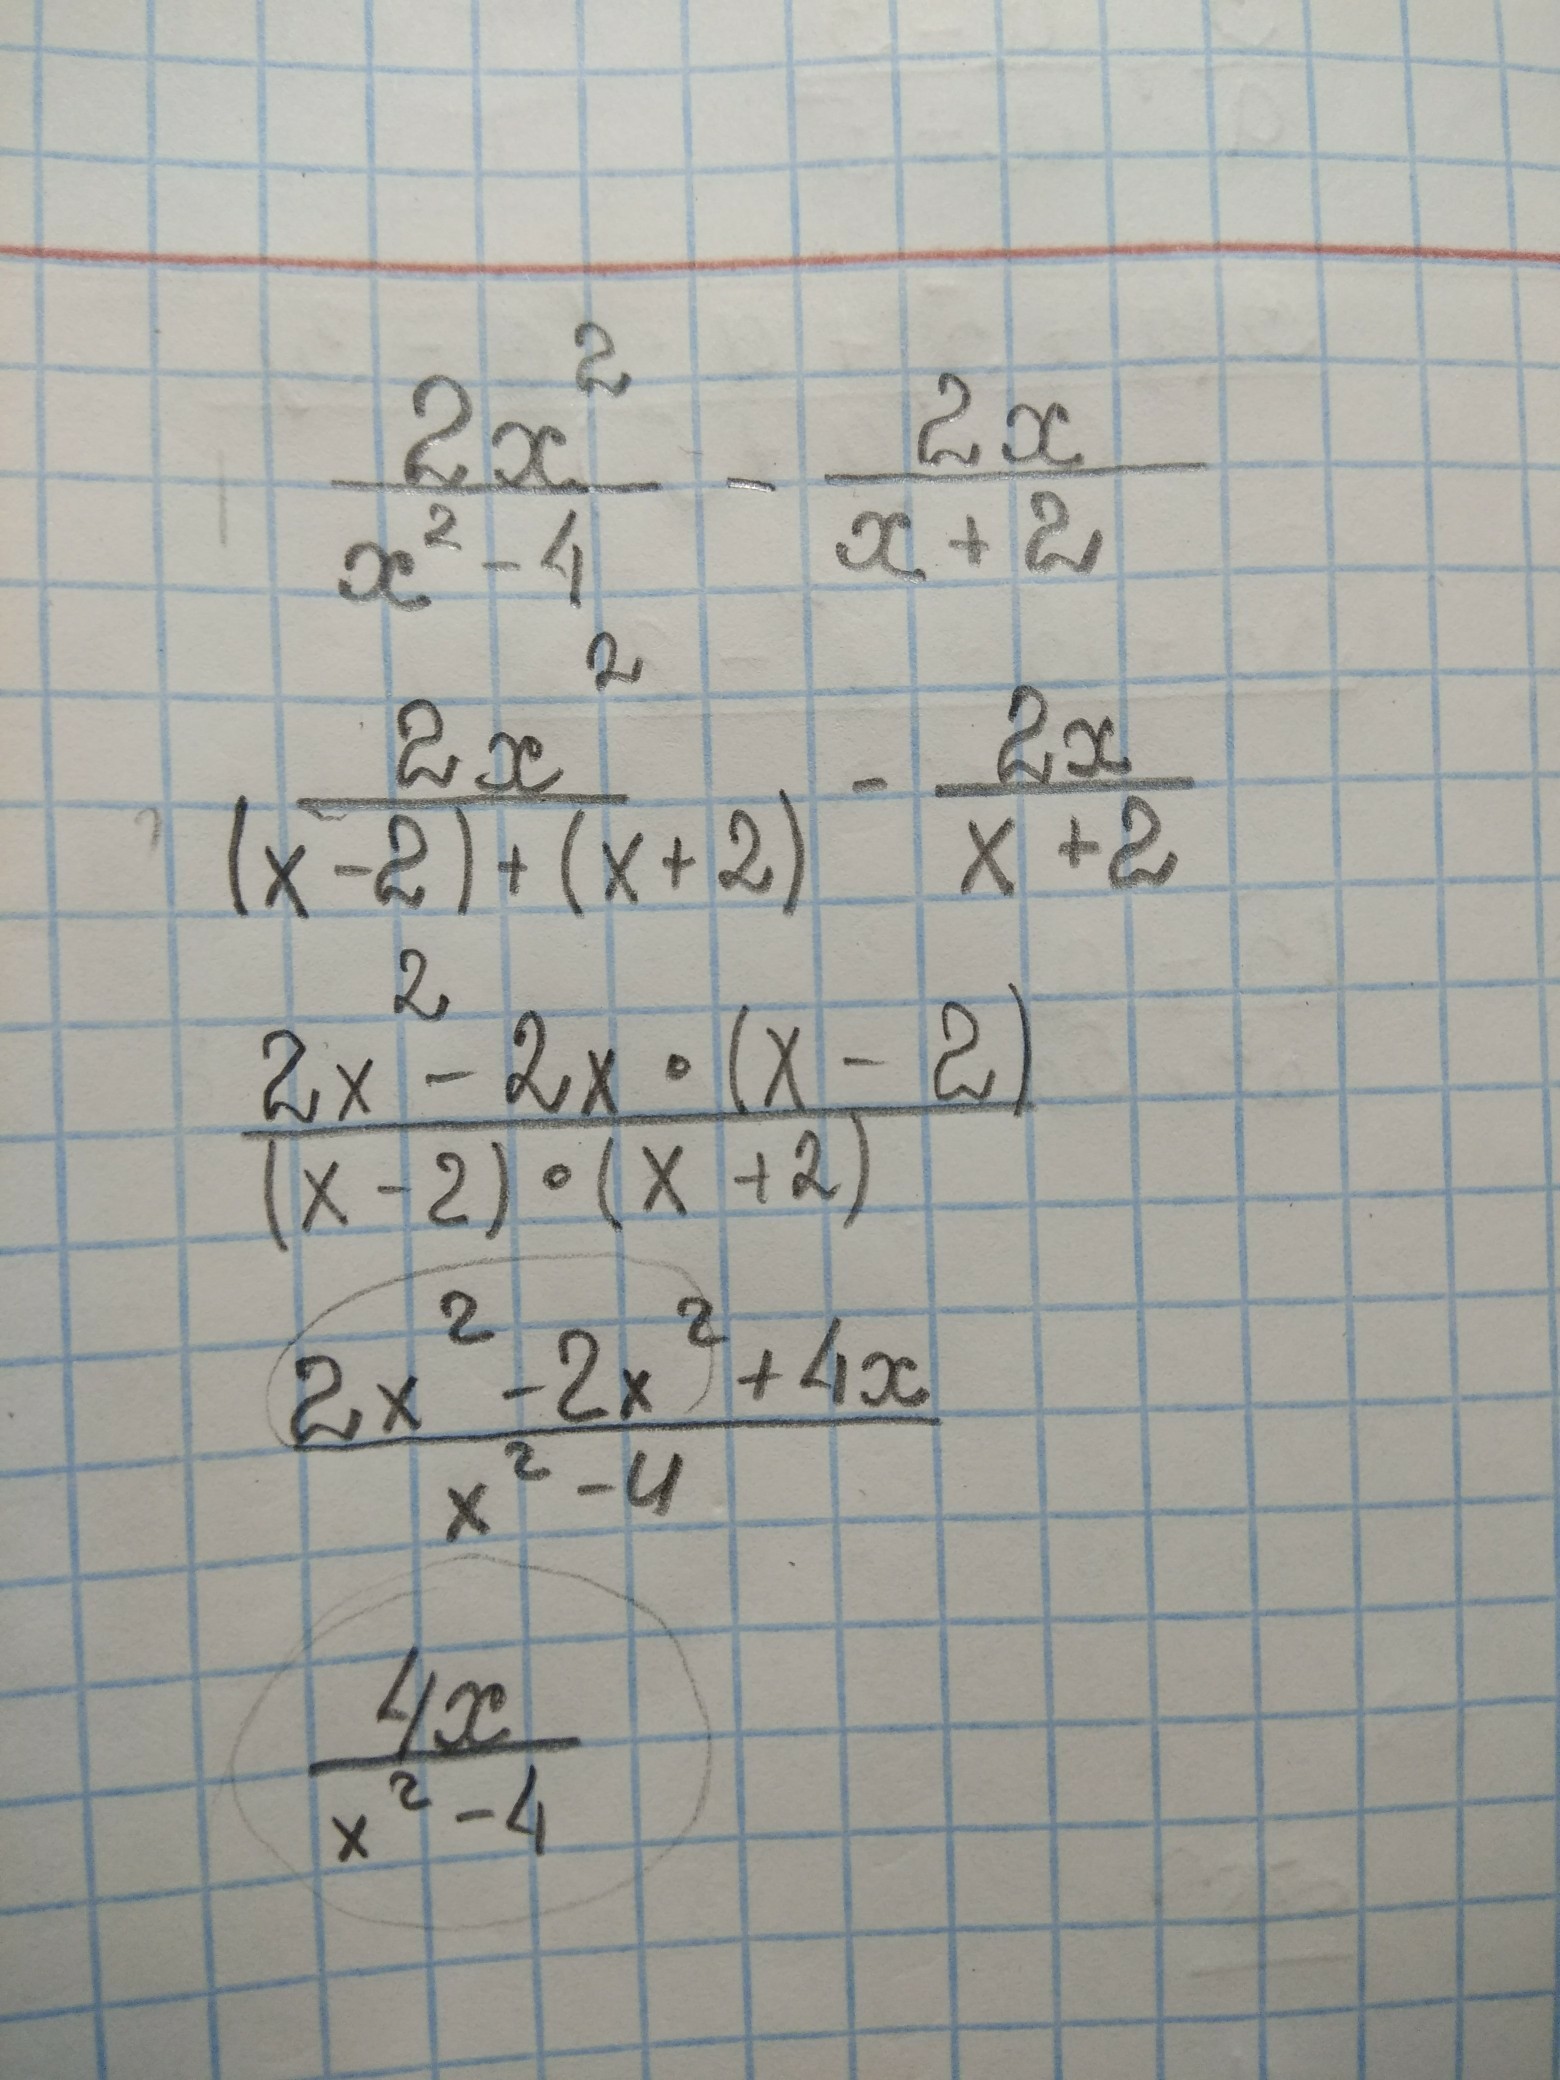 2x² / x² - 4 - 2x / x + 2
2x² / (x - 2) + (x + 2) - 2x / x + 2
2x² - 2x • (x - 2) / (x - 2) • (x + 2)
2x² - 2x² + 4x / x² - 4
4x / x² - 4